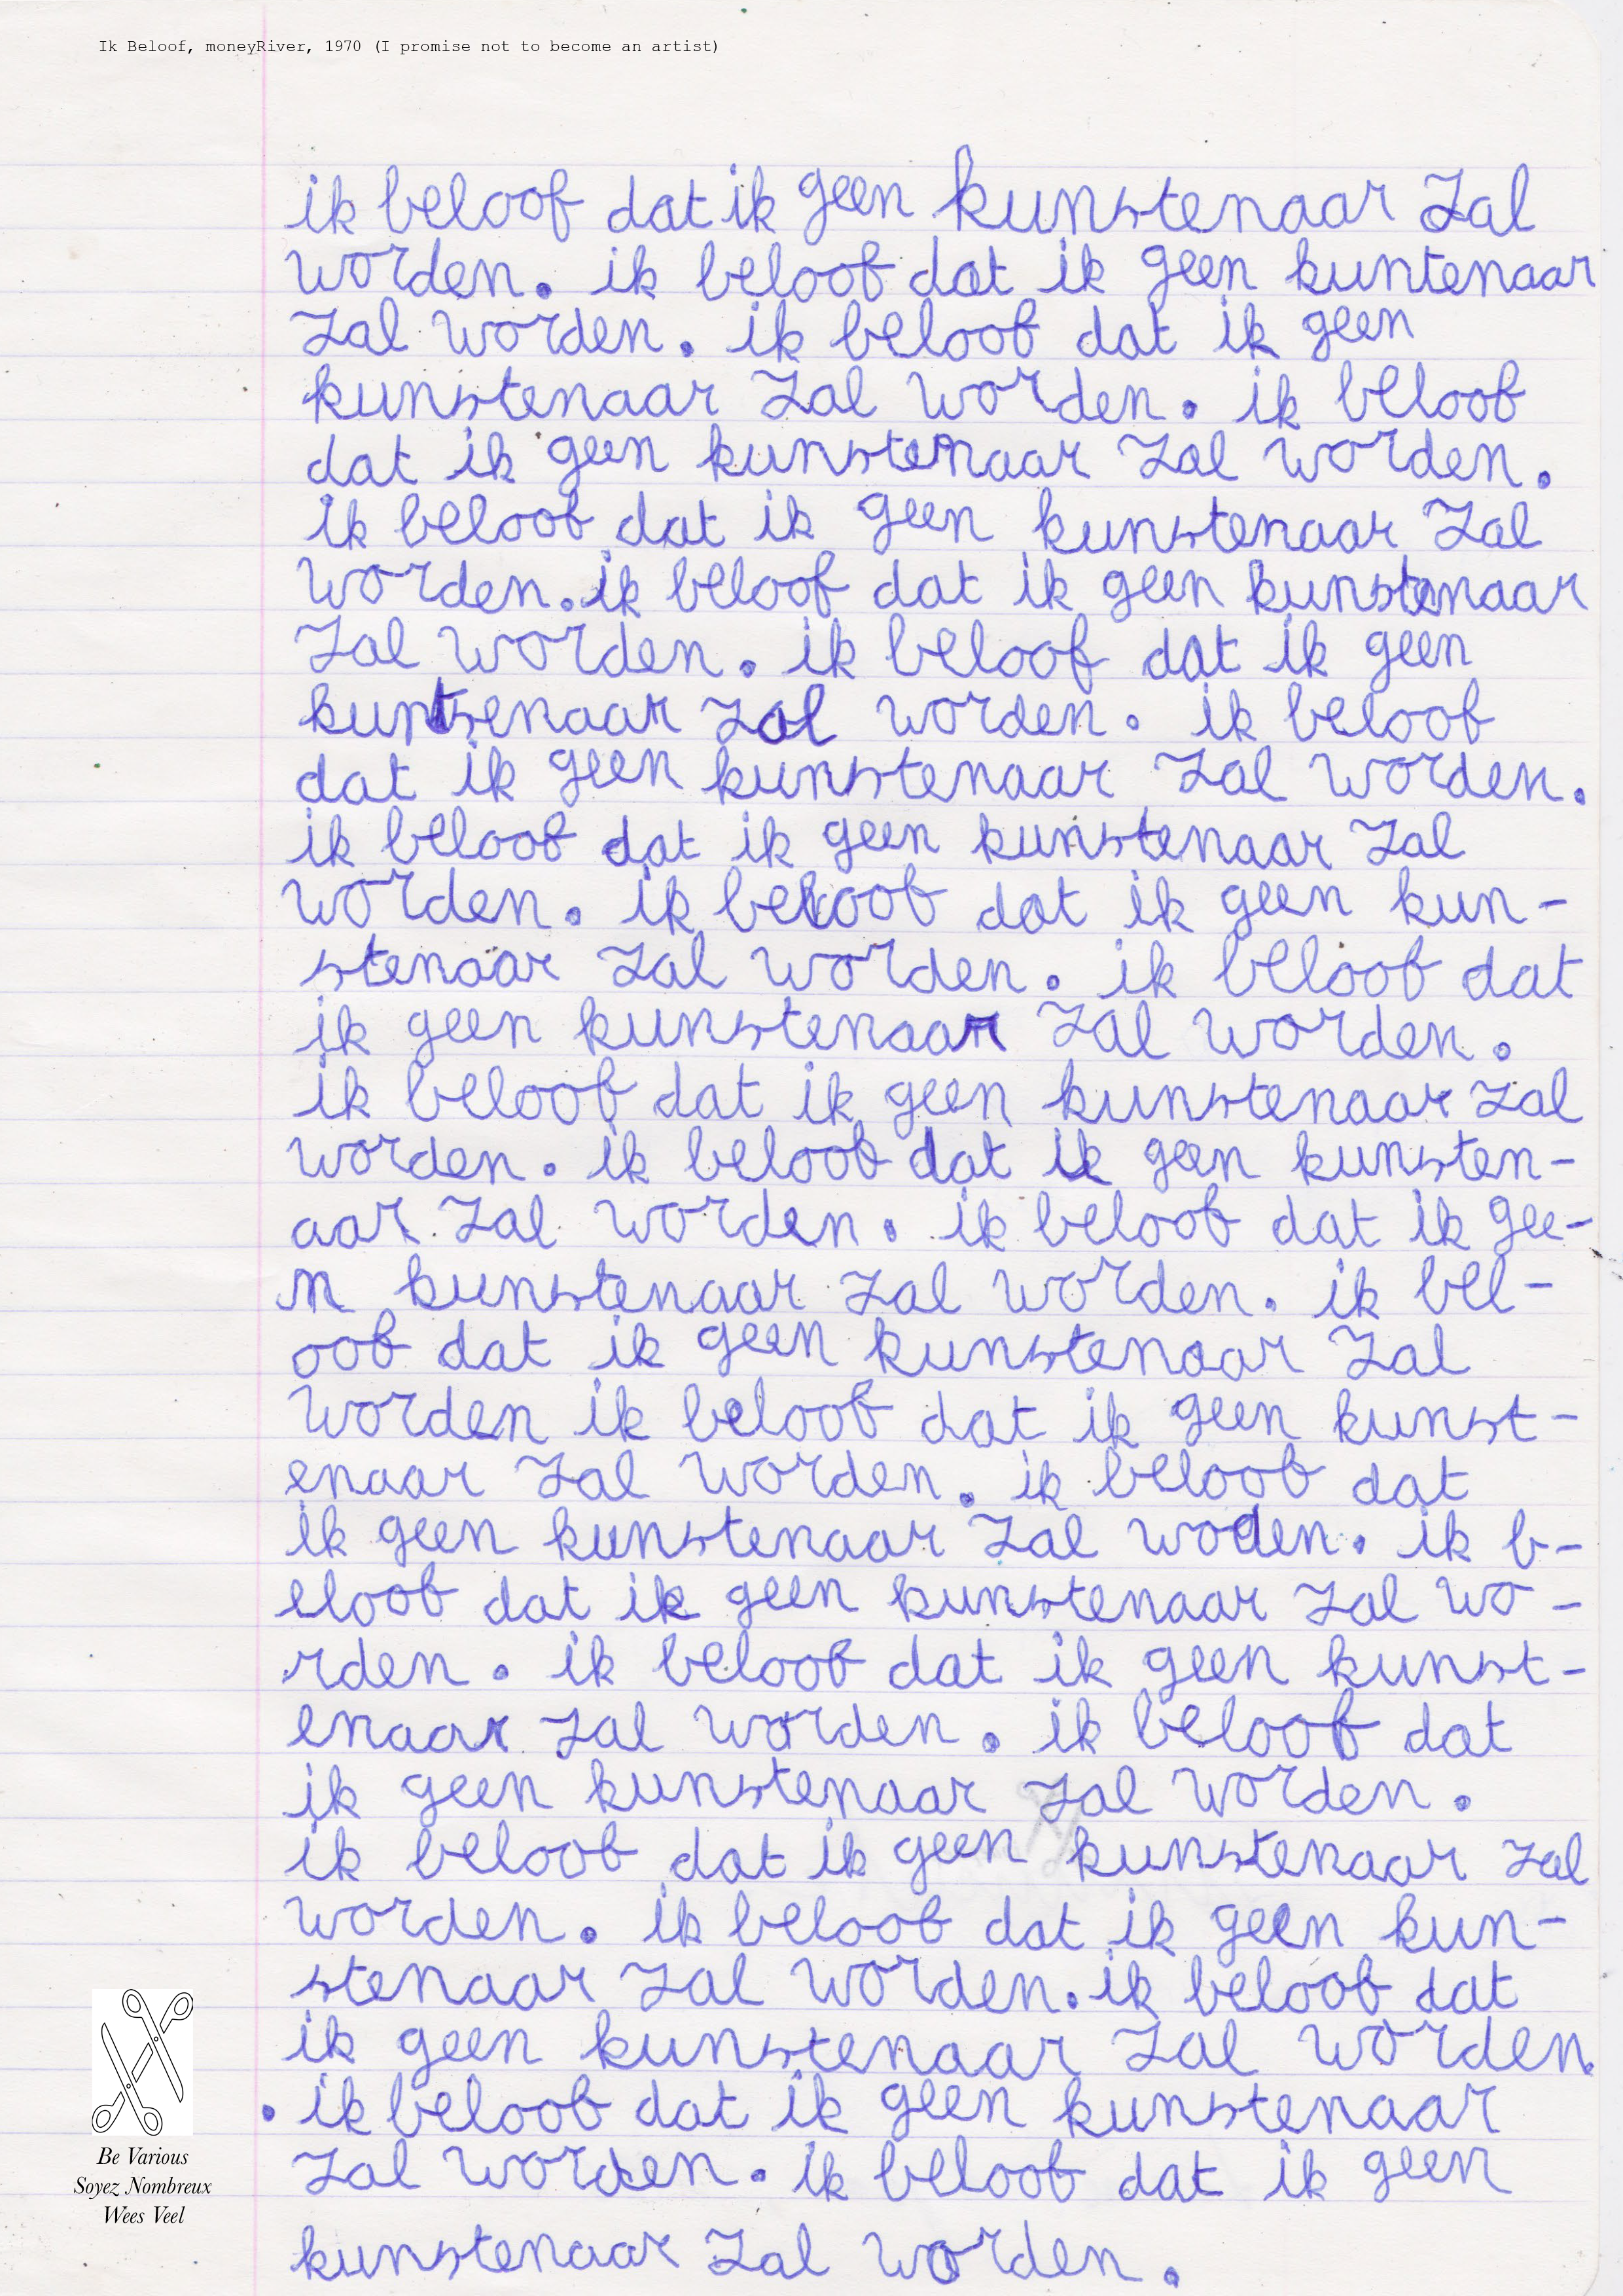 Ik Beloof, moneyRiver, 1970 (I promise not to become an artist)
ik beloof dat ik geen kunstenaar zal
worden. ik beloof dat ik geen kuntenaar
zal worden. ik beloof dat ik geen
kunstenaar zal worden. ik beloof
dat ik geen kunstenaar zal worden.
ik beloof dat ik geen kunstenaar zal
worden. ik beloof dat ik geen kunstenaar
zal worden. ik beloof dat ik geen
kuntsenaar zal worden. ik beloof
dat ik geen kunstenaar zal worden.
ik beloof dat ik geen kunstenaar zal
worden. ik beloof dat ik geen kun-
stenaar zal worden. ik beloof dat
ik geen kunstenaar zal worden.
ik beloof dat ik geen kunstenaar zal
worden. ik beloof dat ik geen kunsten-
aar zal worden. ik beloof dat ik gee-
n kunstenaar zal worden. ik bel-
oof dat ik geen kunstenaar zal
worden ik beloof dat ik geen kunst-
enaar zal worden. ik beloof dat
ik geen kunstenaar zal woden. ik b-
eloof dat ik geen kunstenaar zal wo-
rden. ik beloof dat ik geen kunst-
enaar zal worden. ik beloof dat
ik geen kunstenaar zal worden.
ik beloof dat ik geen kunstenaar zal
worden. ik beloof dat ik geen kun-
stenaar zal worden. ik beloof dat
ik geen kunstenaar zal worden.
. ik beloof dat ik geen kunstenaar
zal worden. ik beloof dat ik geen
kunstenaar zal worden.
Be Various
Soyez Nombreux
Wees Veel